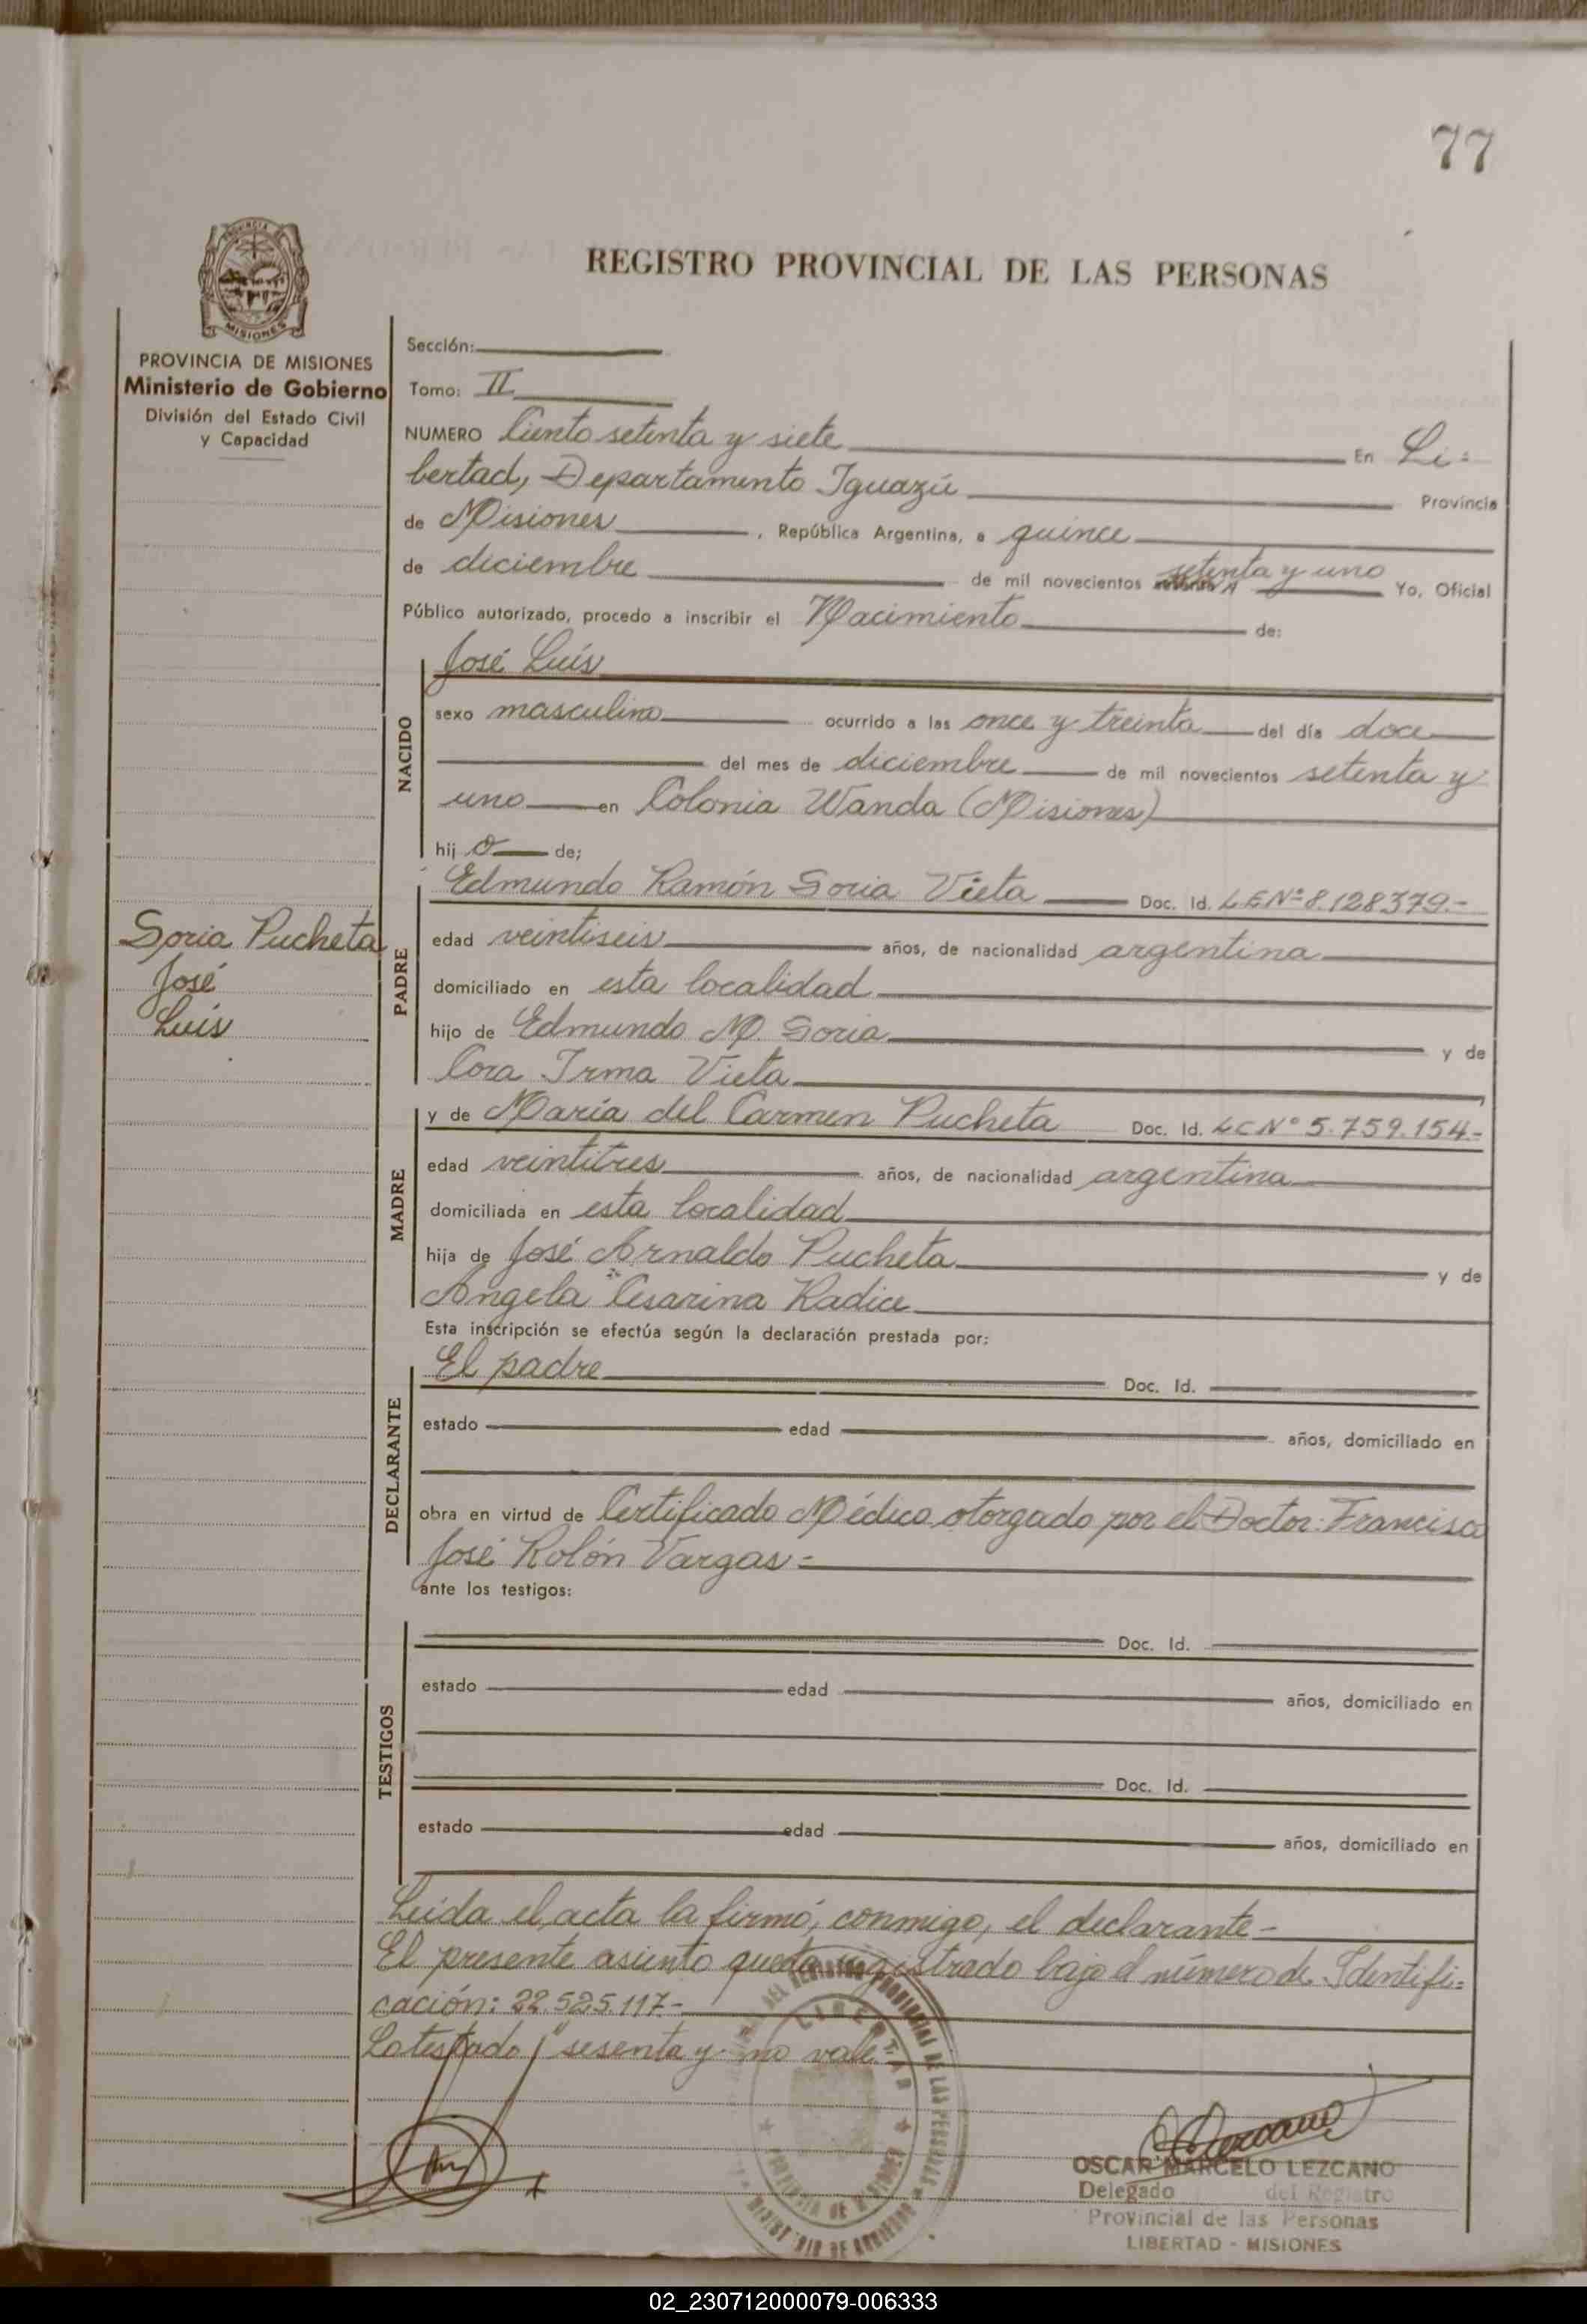 77
REGISTRO PROVINCIAL DE LAS PERSONAS
MISIONES
PROVINCIA DE MISIONES
Ministerio de Gobierno
División del Estado Civil
y Capacidad
Sección:
Tomo: II
NUMERO Ciento setenta y siete En Li=
bertad, Departamento Iguazú Provincia
de Misiones, República Argentina, a quince
de diciembre de mil novecientos setenta y uno Yo, Oficial
Público autorizado, procedo a inscribir el Nacimiento de:
José Luís
NACIDO
sexo masculino ocurrido a las once y treinta del día doce
del mes de diciembre de mil novecientos setenta y
uno en Colonia Wanda (Misiones)
hij o de;
Soria Pucheta
José
Luís
PADRE
Edmundo Ramón Soria Vieta Doc. Id. LE Nº 8.128379.-
edad veintiseis años, de nacionalidad argentina
domiciliado en esta localidad
hijo de Edmundo M. Soria y de
Cora Irma Vieta
MADRE
y de María del Carmen Pucheta Doc. Id. LC Nº 5.759.154.-
edad veintitres años, de nacionalidad argentina
domiciliada en esta localidad
hija de José Arnaldo Pucheta y de
Angela Cesarina Radice
Esta inscripción se efectúa según la declaración prestada por:
DECLARANTE
El padre Doc. Id.
estado edad años, domiciliado en
obra en virtud de Certificado Médico otorgado por el Doctor: Francisco
José Rolón Vargas=
ante los testigos:
TESTIGOS
Doc. Id.
estado edad años, domiciliado en
Doc. Id.
estado edad años, domiciliado en
Leída el acta la firmó, conmigo, el declarante-
El presente asiento queda registrado bajo el número de Identifi=
cación: 22.525.117.-
Lo testado "sesenta y no vale.-
LIBERTAD
OSCAR MARCELO LEZCANO
Delegado del Registro
Provincial de las Personas
LIBERTAD - MISIONES
02_230712000079-006333